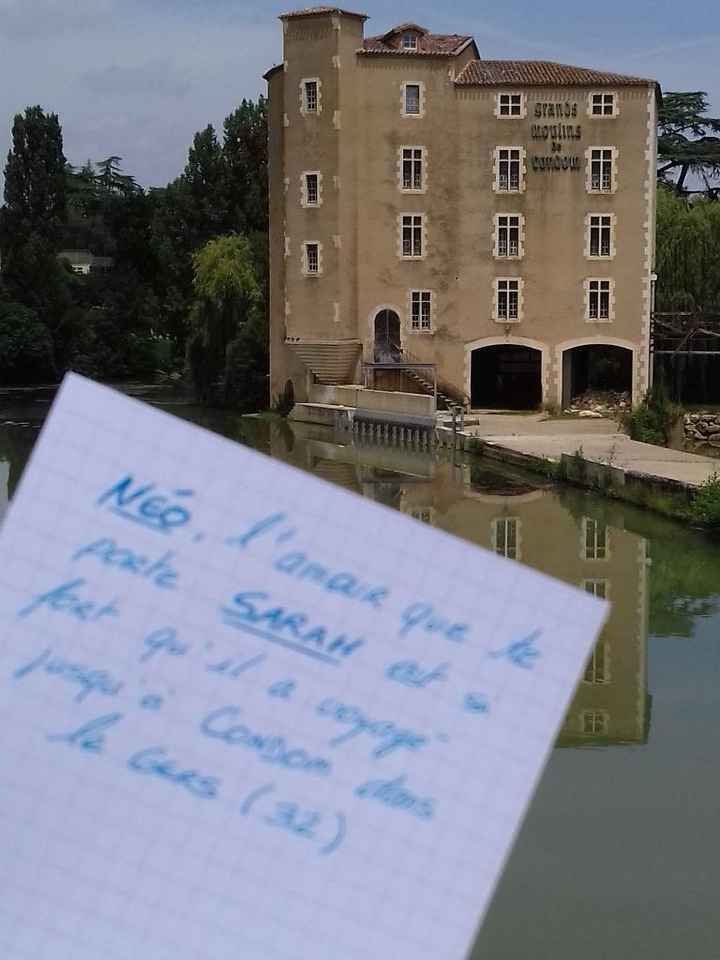 Grands
Moulins
de
Condom
NÉO, l'amour que te
porte SARAH est si
fort qu'il a voyagé
jusqu'à CONDOM dans
le GERS (32)